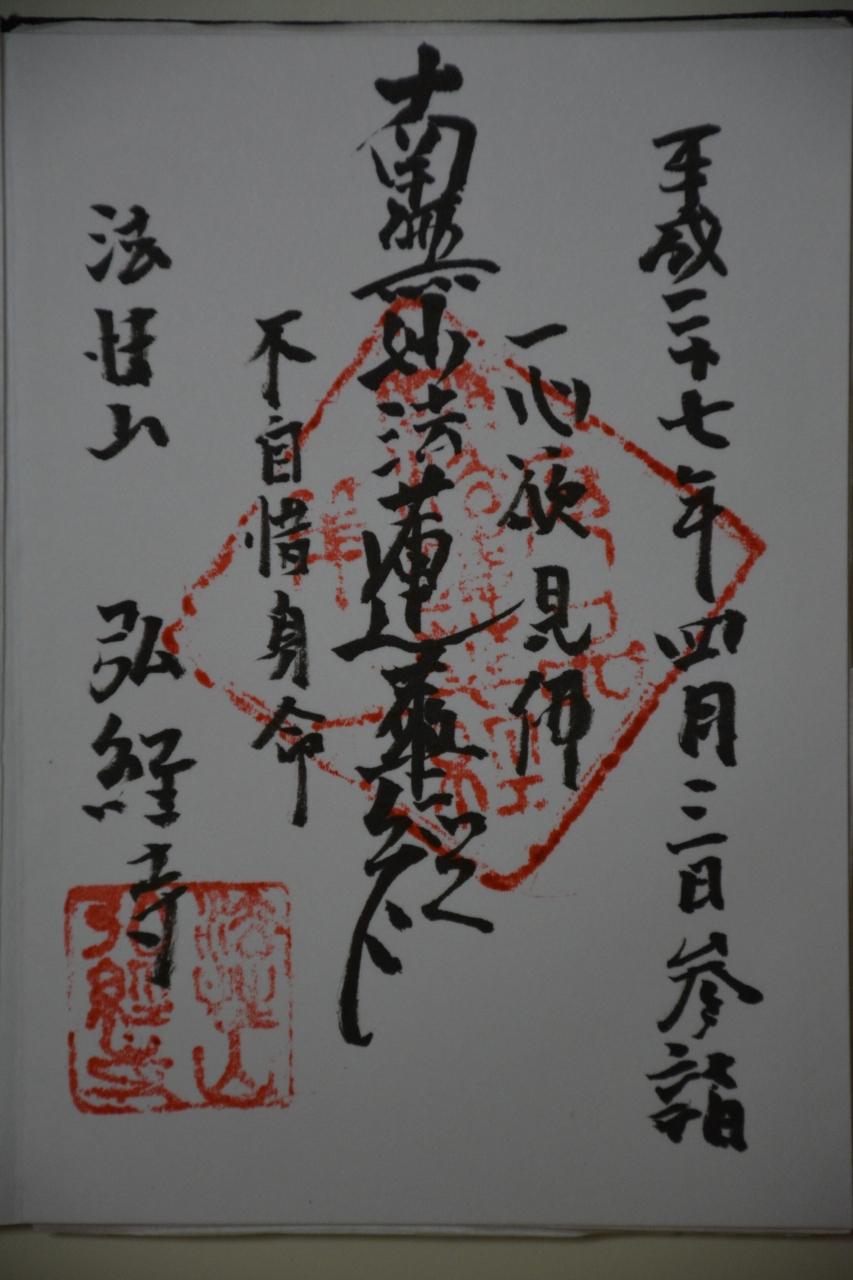 平成二十七年四月三日参詣
一心欲見佛
南無妙法蓮華経
不自惜身命
法性山 弘経寺
法性山
弘経寺